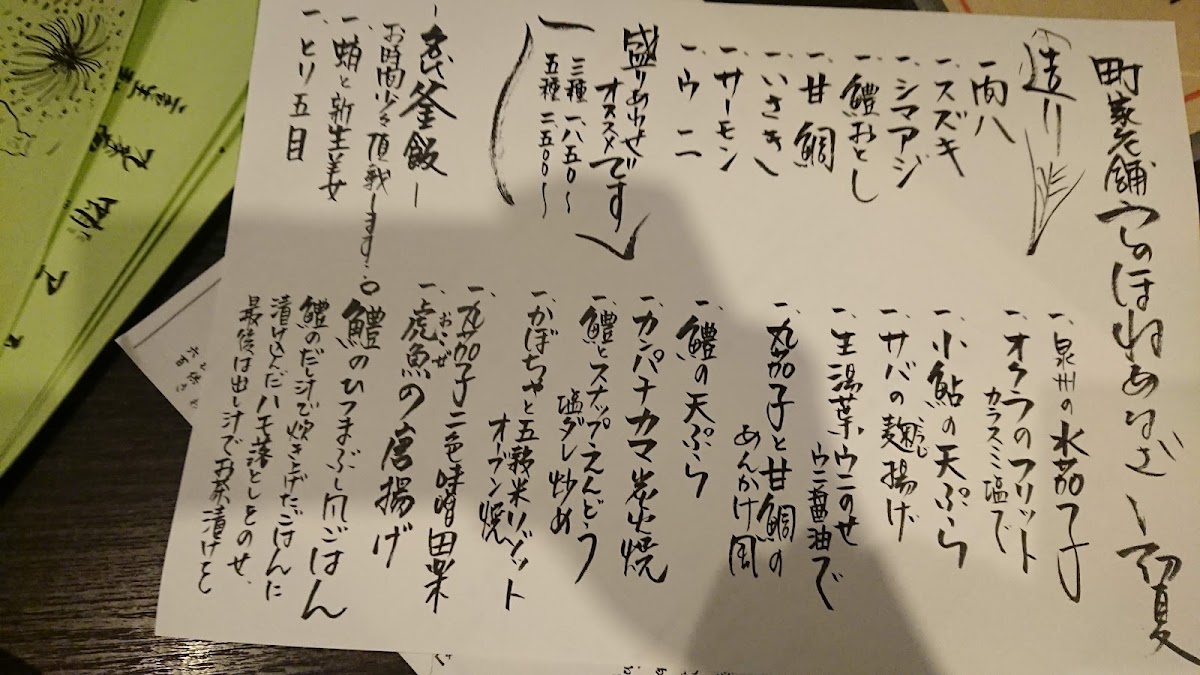 町家老舗 このほねあわざ 〜初夏
造り
一、肉八
一、スズキ
一、シマアジ
一、鱧おとし
一、甘鯛
一、いさき
一、サーモン
一、ウニ
盛りあわせ
オススメです
三種 一、八五〇〜
五種 二五〇〇〜
釜飯
お時間少々頂戴します…。
一、蛸と新生姜
一、とり五目
一、泉州の水茄子
一、オクラのフリット
カラスミ塩で
一、小鮎の天ぷら
一、サバの麹揚げ
こうじ
一、生湯葉、ウニのせ
ウニ醤油で
一、丸茄子と甘鯛の
あんかけ風
一、鱧の天ぷら
一、カンパチカマ炭火焼
一、鱧とスナップえんどう
塩ダレ炒め
一、かぼちゃと五穀米リゾット
オーブン焼
一、丸茄子二色味噌田楽
一、虎魚の唐揚げ
おこぜ
鱧のひつまぶし風ごはん
鱧のだし汁で炊き上げたごはんに
漬け込んだハモ落としをのせ、
最後は出し汁でお茶漬けを